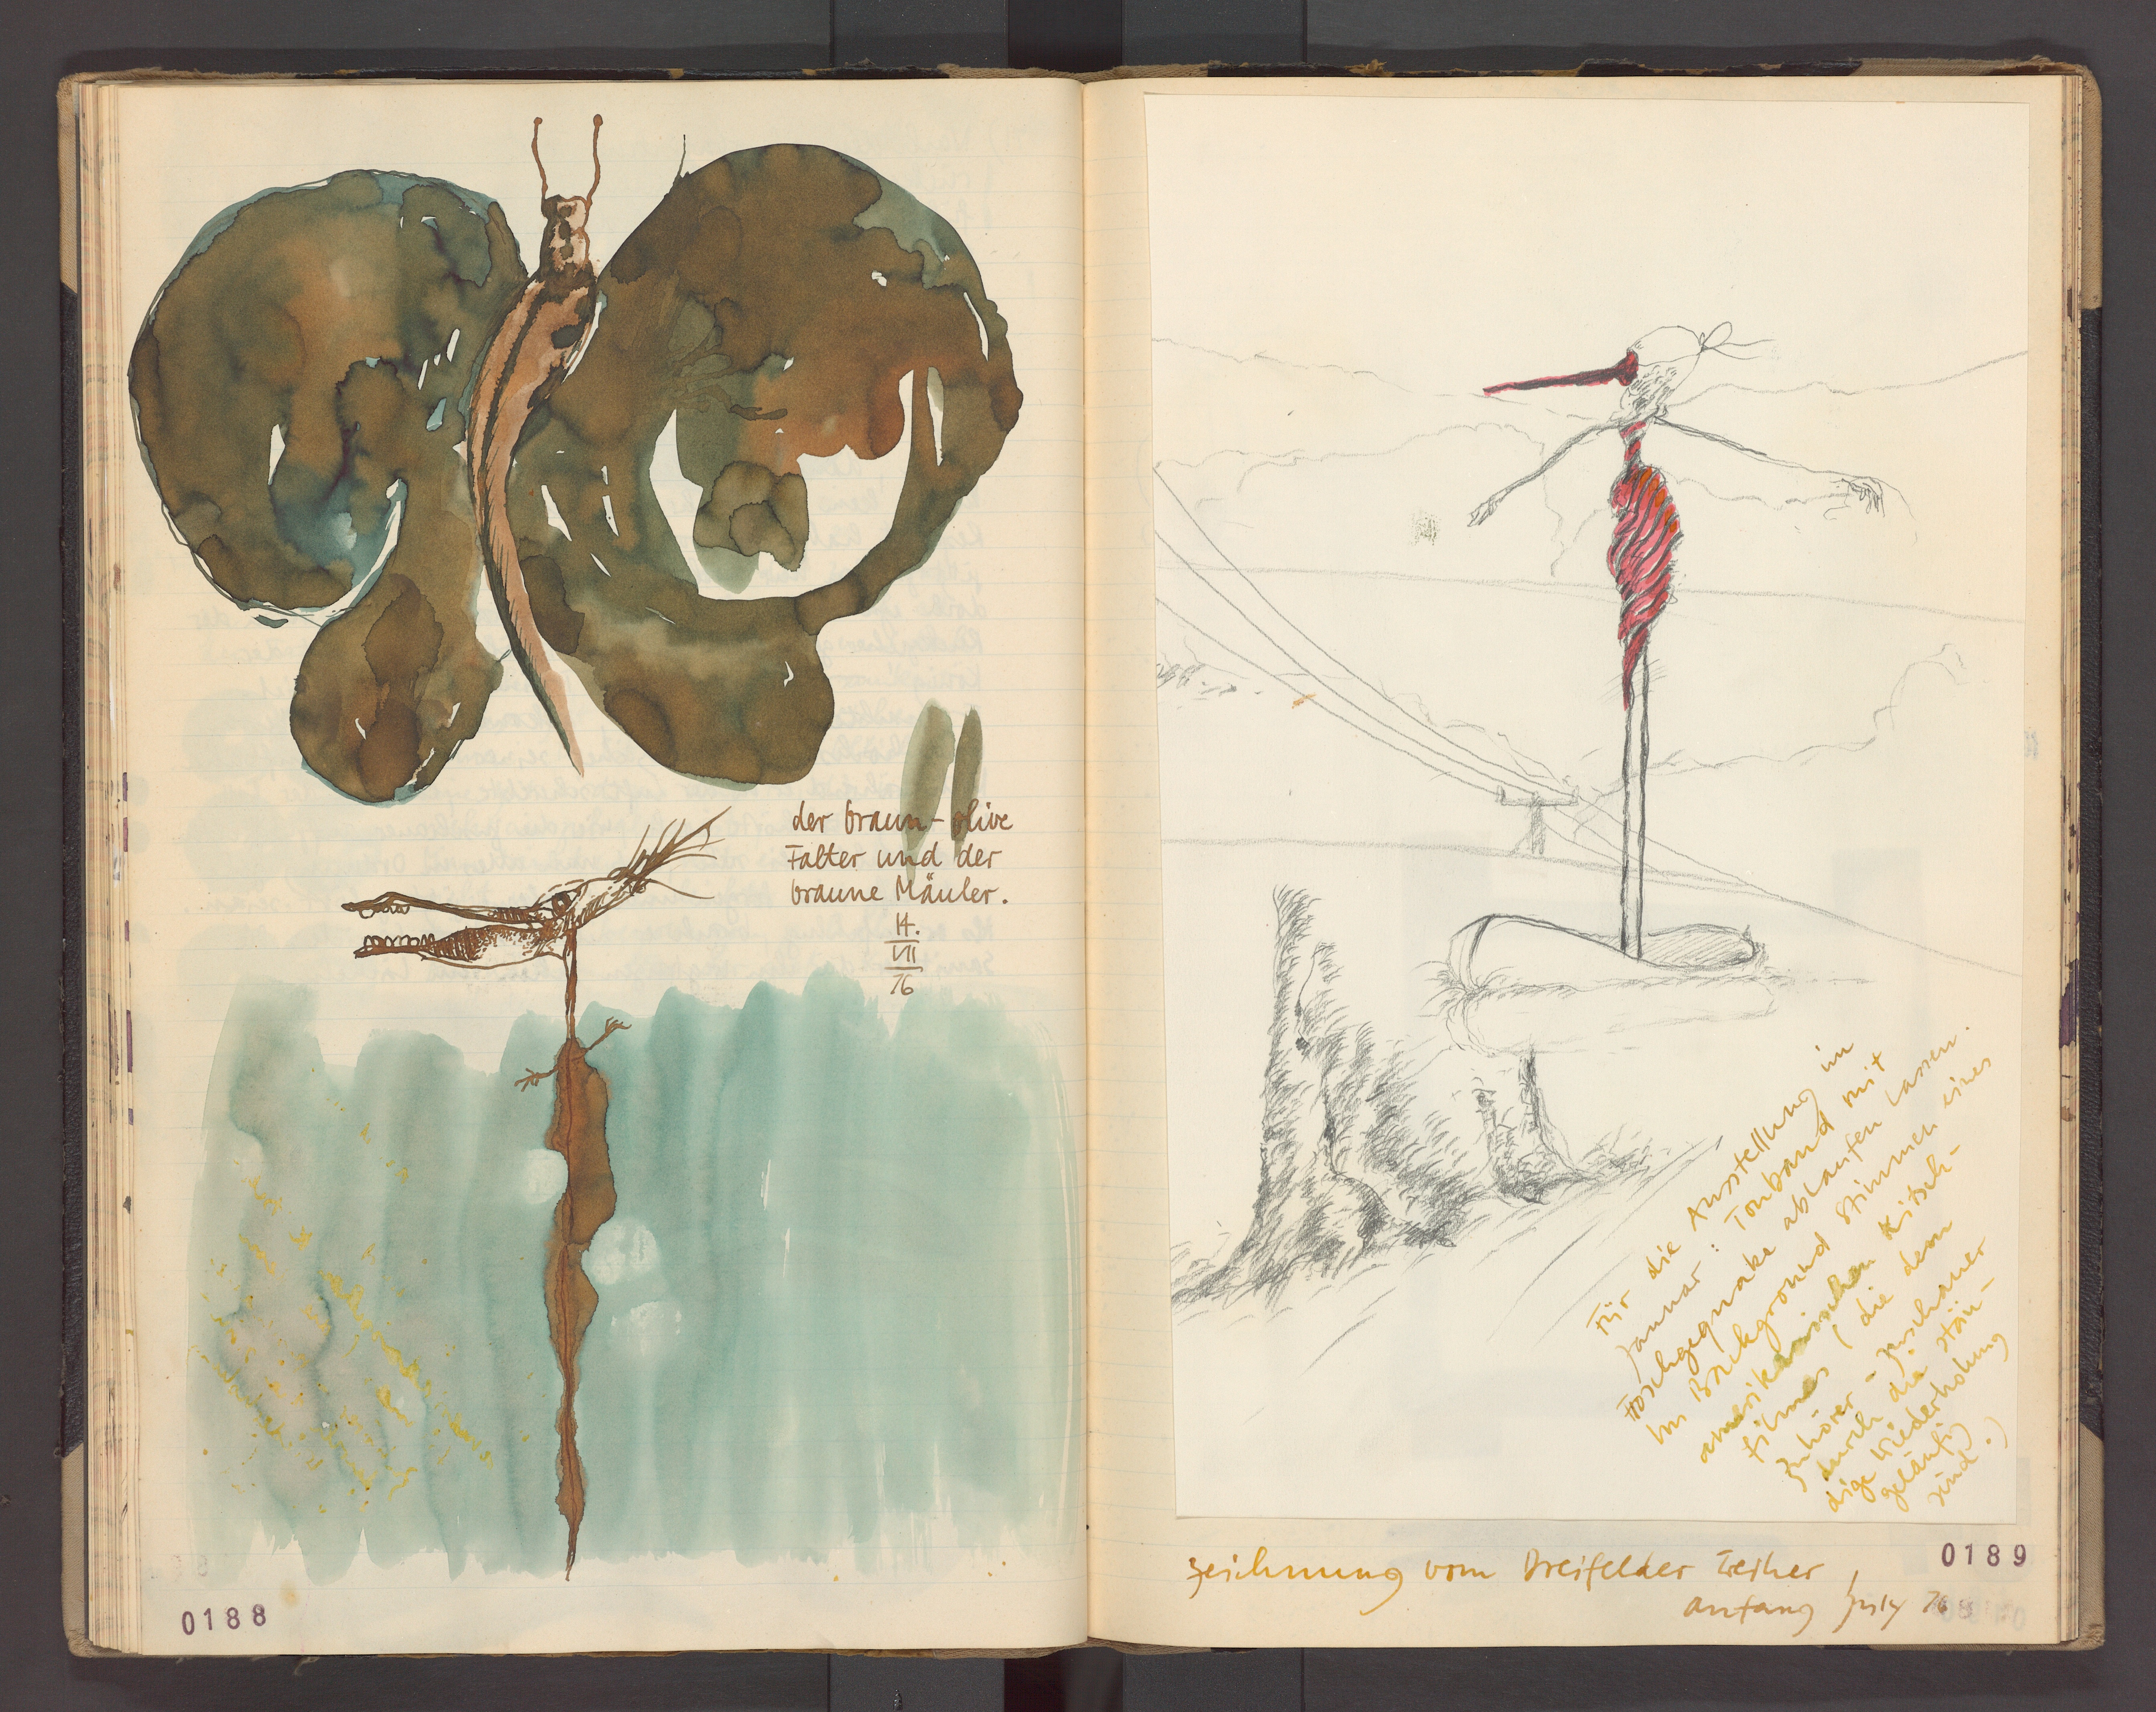 der braun-olive
Falter und der
braune Mäuler.
14.
VII
76
0188
Für die Ausstellung im
Januar: Tonband mit
Froschgequake ablaufen lassen.
Im Background Stimmen eines
amerikanischen Kitsch-
filmes (die dem
Zuhörer-Zuschauer
durch die stän-
dige Wiederholung
geläufig
sind.)
Zeichnung vom Dreifelder Weiher,
Anfang July 76
0189